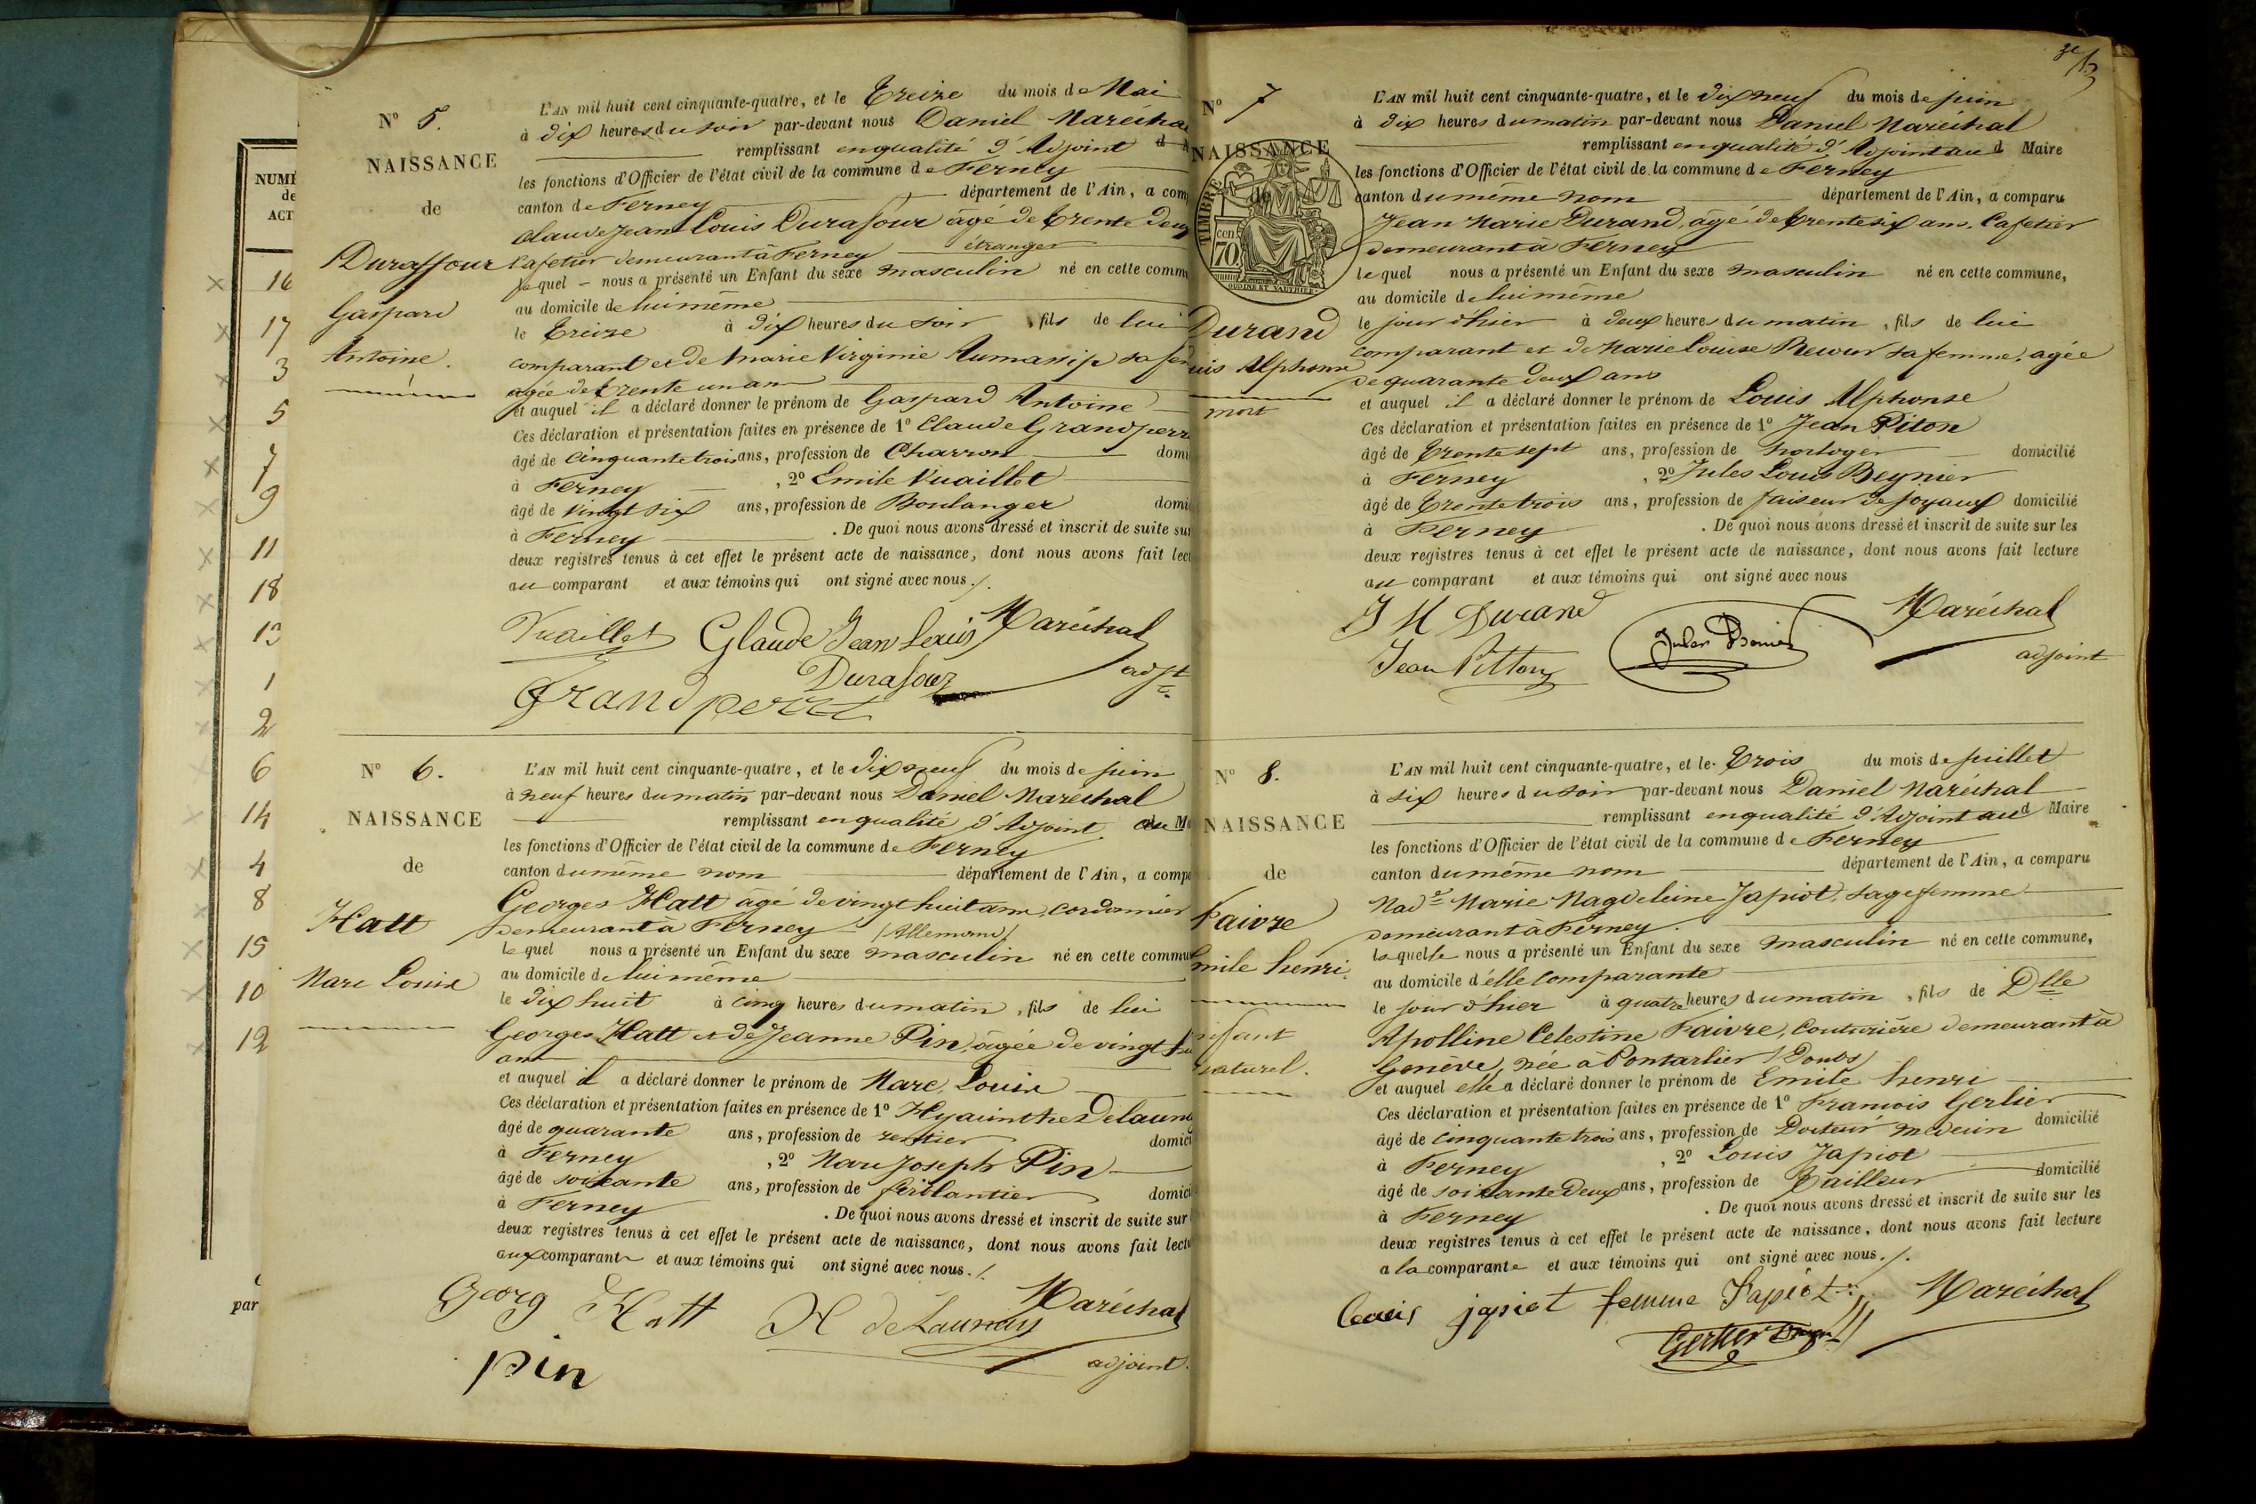 NUMÉ
de
ACT
16
17
3
5
7
9
11
18
13
1
2
6
14
4
8
15
10
12
par
N° 5.
NAISSANCE
de
Duraffour
Gaspard
Antoine.
L'AN mil huit cent cinquante-quatre, et le Treize du mois de Mai
à dix heures du soir par-devant nous Daniel Maréchal
remplissant en qualité d'Adjoint
les fonctions d'Officier de l'état civil de la commune de Ferney
canton de Ferney département de l'Ain, a com
Claude Jean Louis Durafour âgé de trente deux
étranger
Cafetier demeurant à Ferney
lequel nous a présenté un Enfant du sexe masculin né en cette commu
au domicile de lui même
le treize à dix heures du soir, fils de lui
comparant et de Marie Virginie Dumassip sa fem
agée de trente un ans
et auquel il a déclaré donner le prénom de Gaspard Antoine
Ces déclaration et présentation faites en présence de 1° Claude Grandperr
âgé de cinquante trois ans, profession de Charron domi
à Ferney, 2° Emile Vuaillet
âgé de vingt six ans, profession de Boulanger domi
à Ferney. De quoi nous avons dressé et inscrit de suite sur
deux registres tenus à cet effet le présent acte de naissance, dont nous avons fait lect
au comparant et aux témoins qui ont signé avec nous./.
Vuaillet Glaude Jean Louis Maréchal
Durafour adjt
Grandperret
N° 6.
NAISSANCE
de
Hatt
Marc Louis
L'AN mil huit cent cinquante-quatre, et le dix neuf du mois de juin
à neuf heures du matin par-devant nous Daniel Maréchal
remplissant en qualité d'Adjoint au Ma
les fonctions d'Officier de l'état civil de la commune de Ferney
canton du même nom département de l'Ain, a compa
Georges Hatt âgé de vingt huit ans, cordonnier
demeurant à Ferney (Allemand)
lequel nous a présenté un Enfant du sexe masculin né en cette commun
au domicile de lui même
le dix huit à cinq heures du matin, fils de lui
Georges Hatt et de Jeanne Pin, âgée de vingt
ans
et auquel il a déclaré donner le prénom de Marc Louis
Ces déclaration et présentation faites en présence de 1° Hyacinthe Delauna
âgé de quarante ans, profession de rentier domici
à Ferney, 2° Marc Joseph Pin
âgé de soixante ans, profession de ferblantier domici
à Ferney. De quoi nous avons dressé et inscrit de suite sur
deux registres tenus à cet effet le présent acte de naissance, dont nous avons fait lectu
aux comparants et aux témoins qui ont signé avec nous./.
Georg Hatt H deLaunay Maréchal
pin adjoint.
N° 7
NAISSANCE
de
TIMBRE
cen
70
Durand
uis Alphonse
mort
L'AN mil huit cent cinquante-quatre, et le dix neuf du mois de juin
à dix heures du matin par-devant nous Daniel Maréchal
remplissant en qualité d'Adjoint au d Maire
les fonctions d'Officier de l'état civil de la commune de Ferney
canton du même nom département de l'Ain, a comparu
Jean Marie Durand, âgé de trente six ans, Cafetier
demeurant à Ferney
lequel nous a présenté un Enfant du sexe masculin né en cette commune,
au domicile de lui même
le jour d'hier à deux heures du matin, fils de lui
comparant et de Marie Louise sa femme, agée
de quarante deux ans
et auquel il a déclaré donner le prénom de Louis Alphonse
Ces déclaration et présentation faites en présence de 1° Jean Piton
âgé de trente sept ans, profession de horloger domicilié
à Ferney, 2° Jules Louis Beynier
âgé de trente trois ans, profession de faiseur de joyaux domicilié
à Ferney. De quoi nous avons dressé et inscrit de suite sur les
deux registres tenus à cet effet le présent acte de naissance, dont nous avons fait lecture
au comparant et aux témoins qui ont signé avec nous
J M Durand Maréchal
Jean Pitton Jules adjoint
N° 8.
NAISSANCE
de
Faivre
mile henri.
nfant
naturel.
L'AN mil huit cent cinquante-quatre, et le trois du mois de juillet
à six heures du soir par-devant nous Daniel Maréchal
remplissant en qualité d'Adjoint au d Maire
les fonctions d'Officier de l'état civil de la commune de Ferney
canton du même nom département de l'Ain, a comparu
Mad.e Marie Magdeleine Japiot, sage femme
demeurant à Ferney.
laquelle nous a présenté un Enfant du sexe masculin né en cette commune,
au domicile d'elle comparante
le jour d'hier à quatre heures du matin, fils de Dlle
Apolline Celestine Faivre, Couturière demeurant à
Genève, née à Pontarlier (Doubs)
et auquel elle a déclaré donner le prénom de Emile henri
Ces déclaration et présentation faites en présence de 1° François Gerlier
âgé de cinquante trois ans, profession de Docteur medecin domicilié
à Ferney, 2° Louis Japiot
âgé de soixante deux ans, profession de Tailleur domicilié
à Ferney. De quoi nous avons dressé et inscrit de suite sur les
deux registres tenus à cet effet le présent acte de naissance, dont nous avons fait lecture
a la comparante et aux témoins qui ont signé avec nous./.
Louis japiot femme Japiot Maréchal
Gerlier